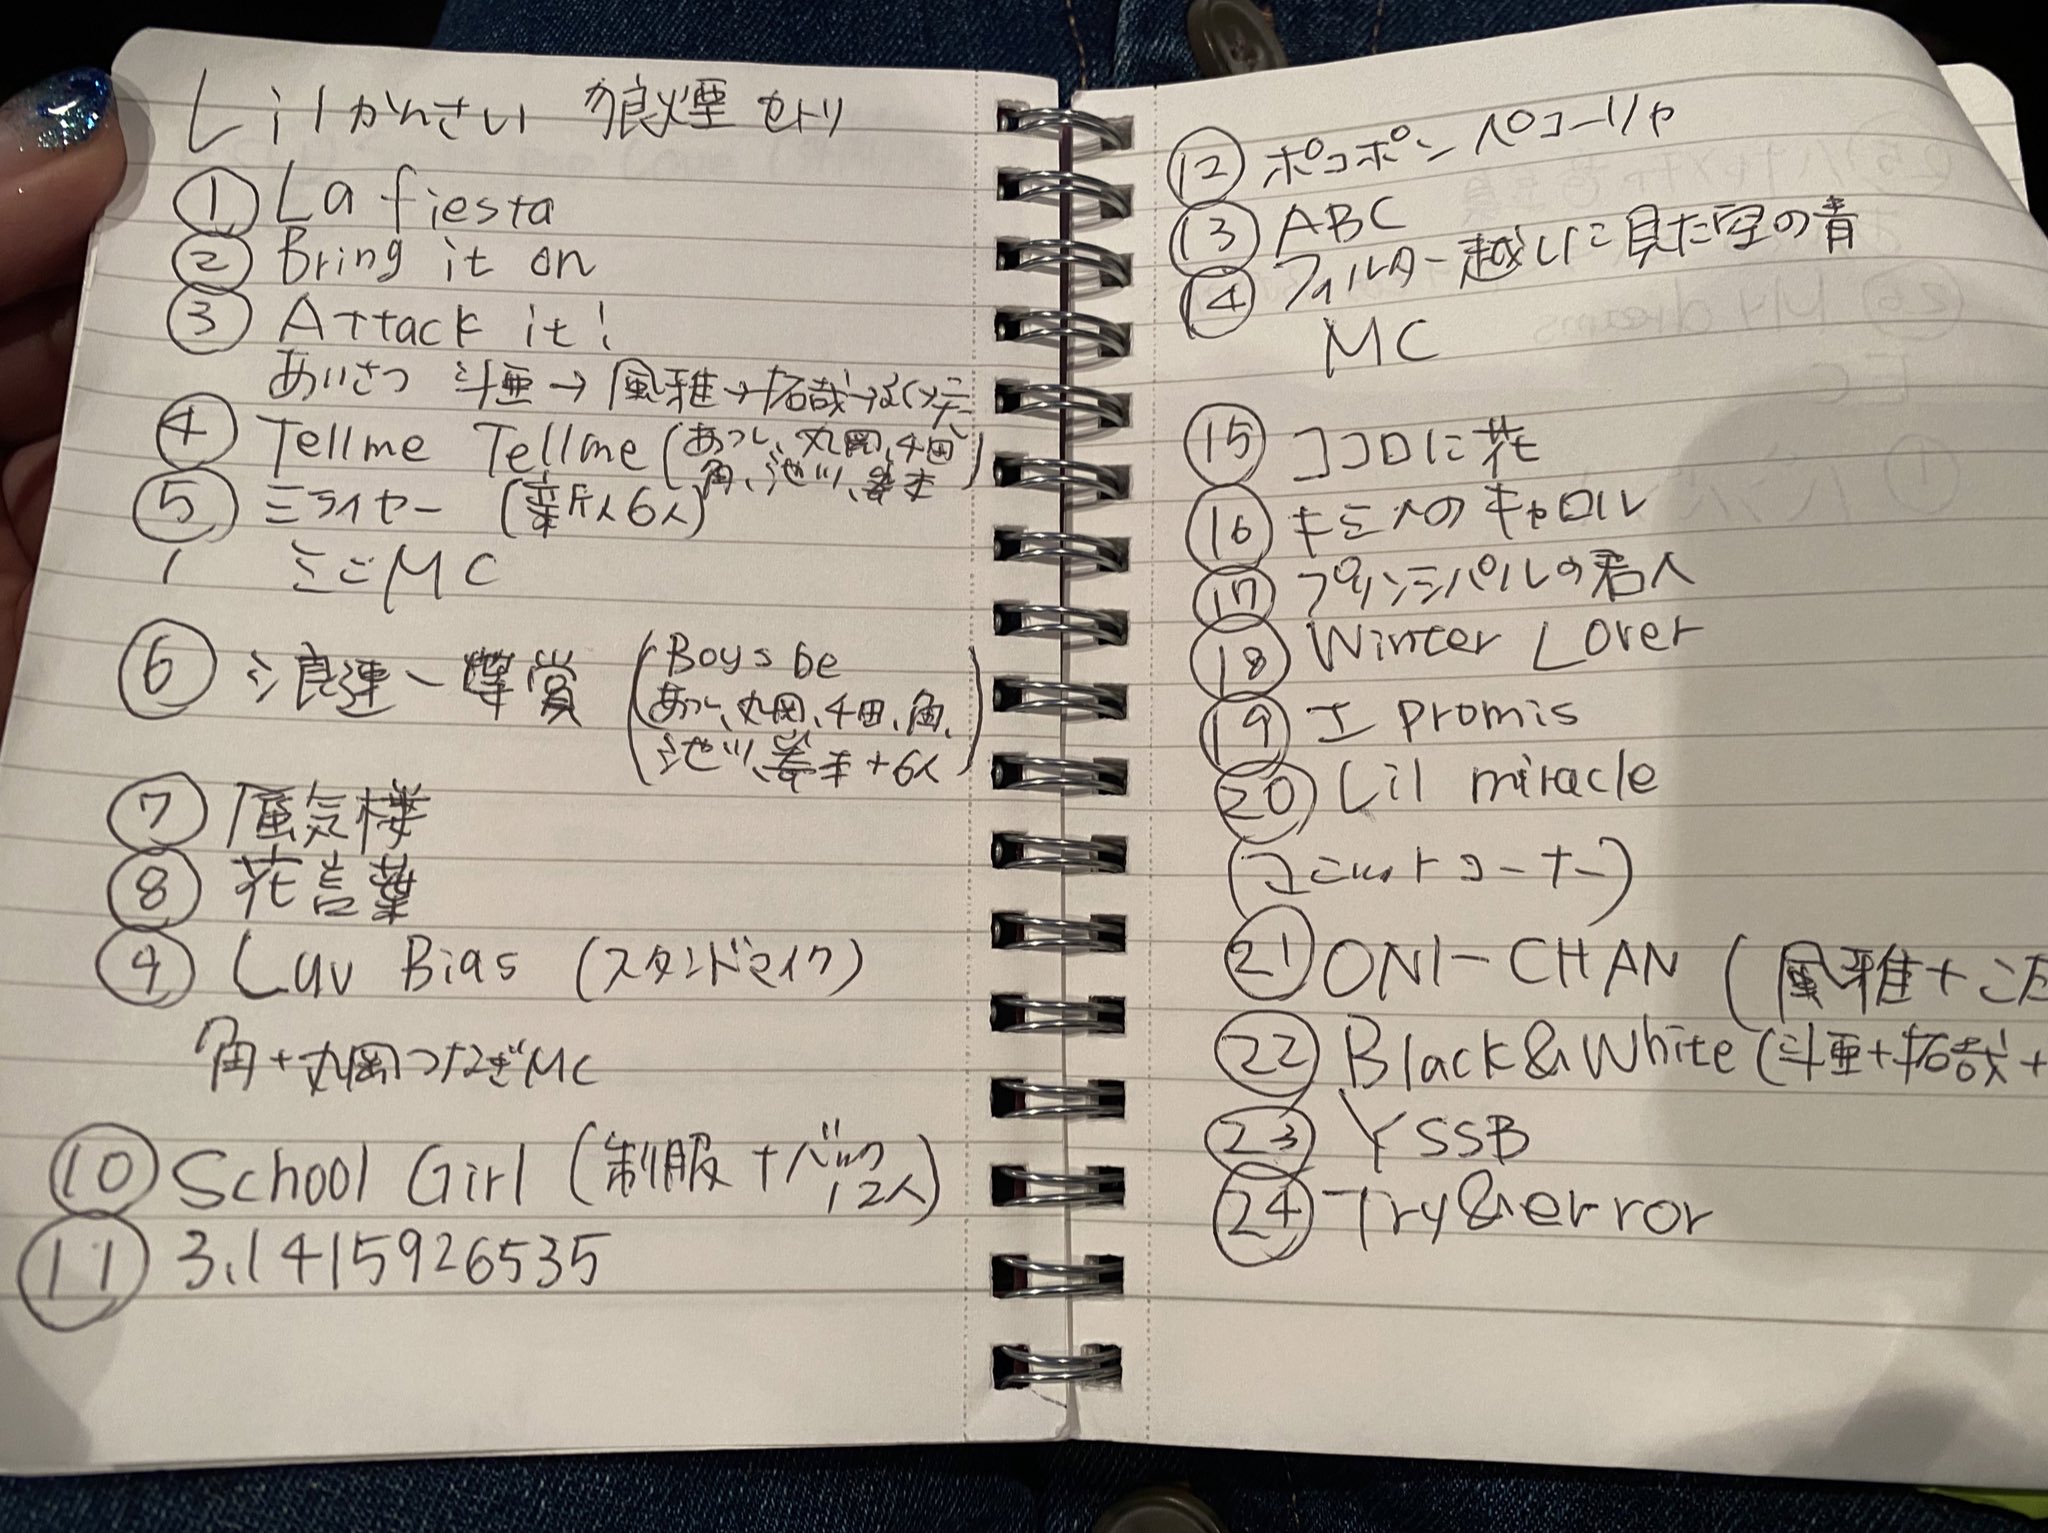 Lilかんさい 狼煙 セトリ
① La fiesta
② Bring it on
③ Attack it!
あいさつ 斗亜→風雅→拓哉→
④ Tell me Tell me (あつし、丸岡、千田
角、池川、岑末)
⑤ ミライヤー (新人6人)
ミニMC
⑥ 浪速一等賞 (Boys be
あつし、丸岡、千田、角、
池川、岑末+6人)
⑦ 蜃気楼
⑧ 花言葉
⑨ Luv Bias (スタンドマイク)
角+丸岡つなぎMC
⑩ School Girl (制服+バック
12人)
⑪ 3.1415926535
⑫ ポコポンペコーリャ
⑬ ABC
⑭ フィルター越しに見た空の青
MC
⑮ ココロに花
⑯ キミへのキャロル
⑰ プリンシパルの君へ
⑱ Winter Lover
⑲ I promis
⑳ Lil miracle
(ユニットコーナー)
㉑ ONI-CHAN (風雅+
㉒ Black&White (斗亜+拓哉+
㉓ YSSB
㉔ Try&error